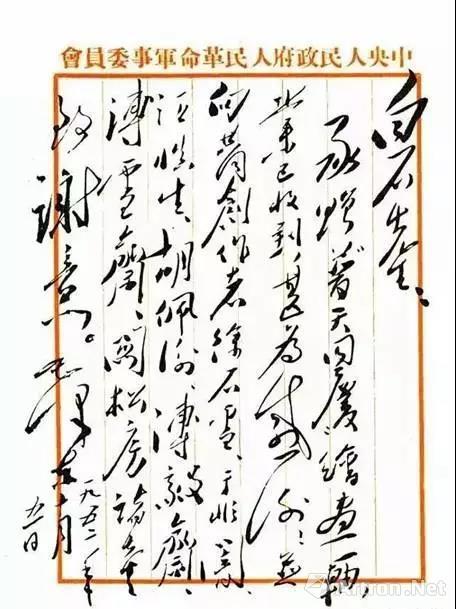 中央人民政府人民革命軍事委員會
白石先生：
承贈普天同慶繪畫一軸，
業已收到，甚為感謝！並
向共同創作者徐石雪、于非闇、
汪慎生、胡佩衡、溥毅齋、
溥雪齋、關松房諸先生
致謝意。
毛澤東
一九五二年
十月
五日
Artron.Net